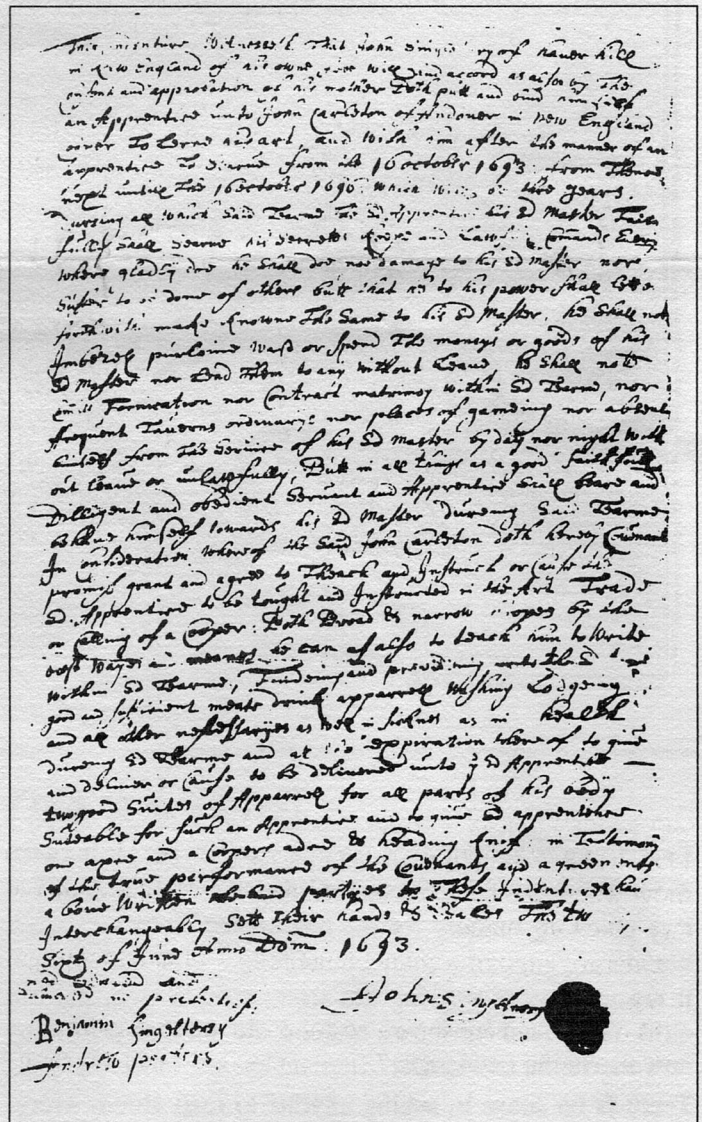 This indenture Witnesseth That John of haver hill
in New England of his owne free will and accord as also by The
consent and approbation of his mother Doth putt and bind himself
an Apprentice unto John Carleton of Andover in New England
cooper To Lerne his art and With him after the manner of an
apprentice To searve from the 16 october 1693 from Thence
next untill The 16 october 1696 which will be thre years.
During all which said Tearme the sd Apprentice his sd Master Faith
fully shall searve his secretes keepe and Lawfull Comands Every
where gladly doe he shall doe noe damage to his sd Master nor
suffer to be done of others butt that he to his power shall lett or
forthwith make knowne The Same to his sd Master. he shall not
Imbezel purloine wast or spend The moneys or goods of his
sd Master nor Lend Them to any without Leave, he shall nott
Comitt Fornication nor Contract matrimony within sd Tearme, nor
frequent Taverns ordinarys nor places of gameing nor absent
himself from the Service of his sd Master by day nor night with
out leave or unlawfully, Butt in all things as a good faithfull
Dilligent and obedient Servant and Apprentice shall beare and
behave himself towards his sd Master dureing Said Tearme
In Consideration whereof the said John Carleton doth hereby Covenant
promis grant and agree to Theach and Instruct or Cause the
sd. Apprentice to be tought and Instructed in the Art Trade
or Calling of a Cooper: Both Broad & narrow by the
best wayes and meanes he can as also to teach him to Write
within sd Tearme, Findeing and provideing unto the sd
good and suficient meate drink apparrell washing Lodgeing
and all other nessessaryes as well in sicknes as in health
dureing sd Tearme and at the expiration there of to give
and deliver or Cause to be delivered unto ye sd Apprentice
two good Suites of Apparrell for all parts of his body
Suteable for such an Apprentice and to give sd apprentice
one axee and a Coopers adze & heading knif: in Testimony
of the true performance of the Covenants and agreements
a bove written the said partyes to These Indentures have
Interchangeably Sett their hands & Seales The twe
Sixty of June Anno Dom. 1693.
Signed Sealed and
in presence of
Benjamin Singeltery
Andrew peters.
John Singletery